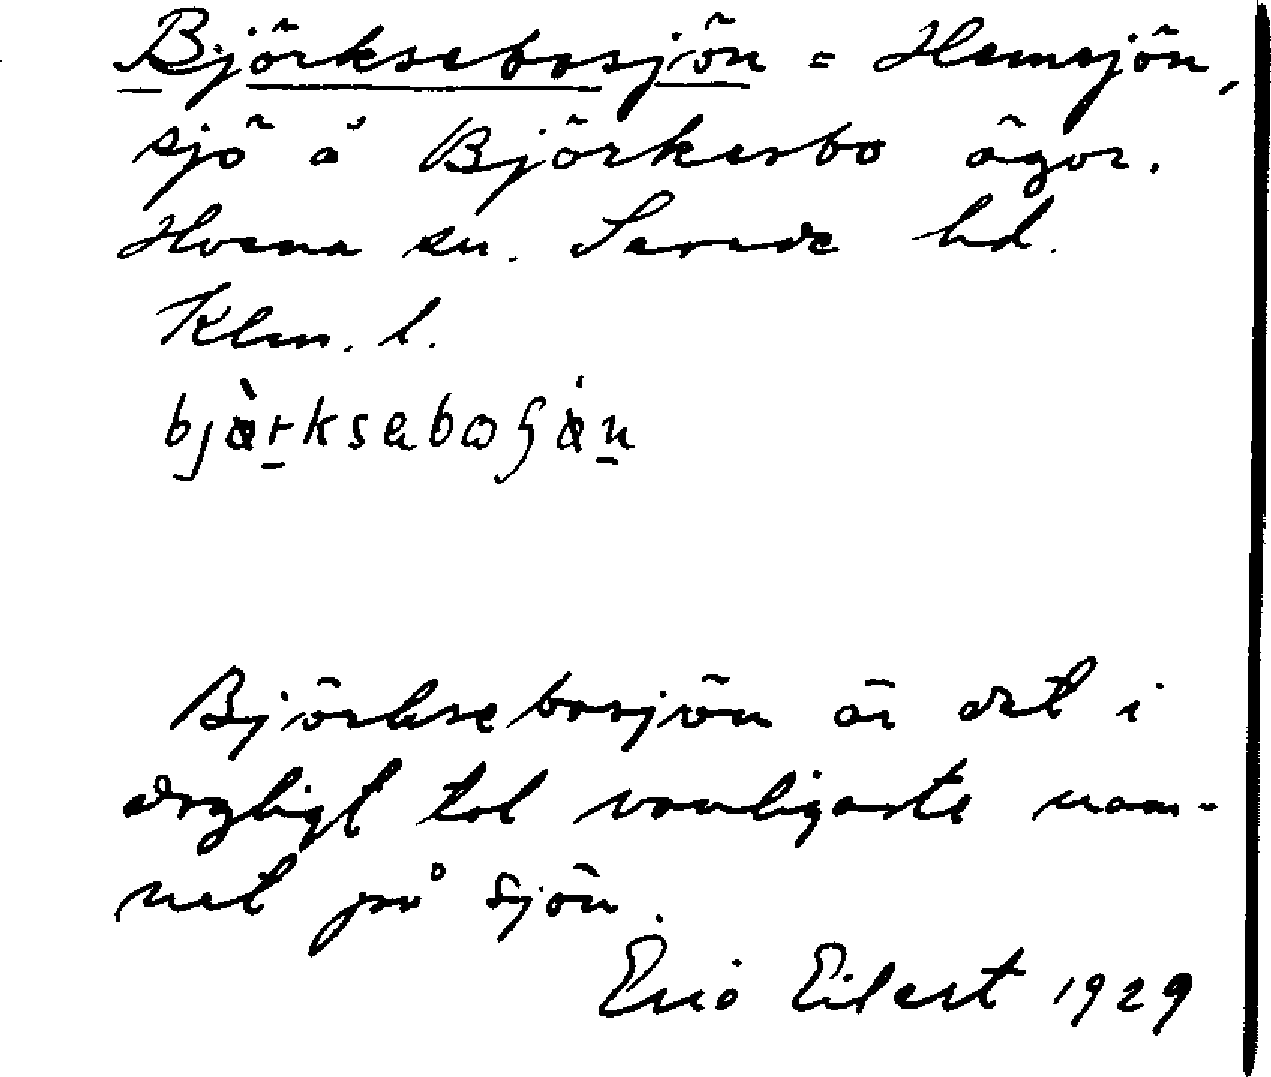 Björksebosjön = Hemsjön,
sjö å Björkesbo ägor.
Hvena sn. Sevede hd.
Klm. l.
Björksebosjön är det i
dagligt tal vanligaste nam-
net på sjön.
Eric Eilert 1929